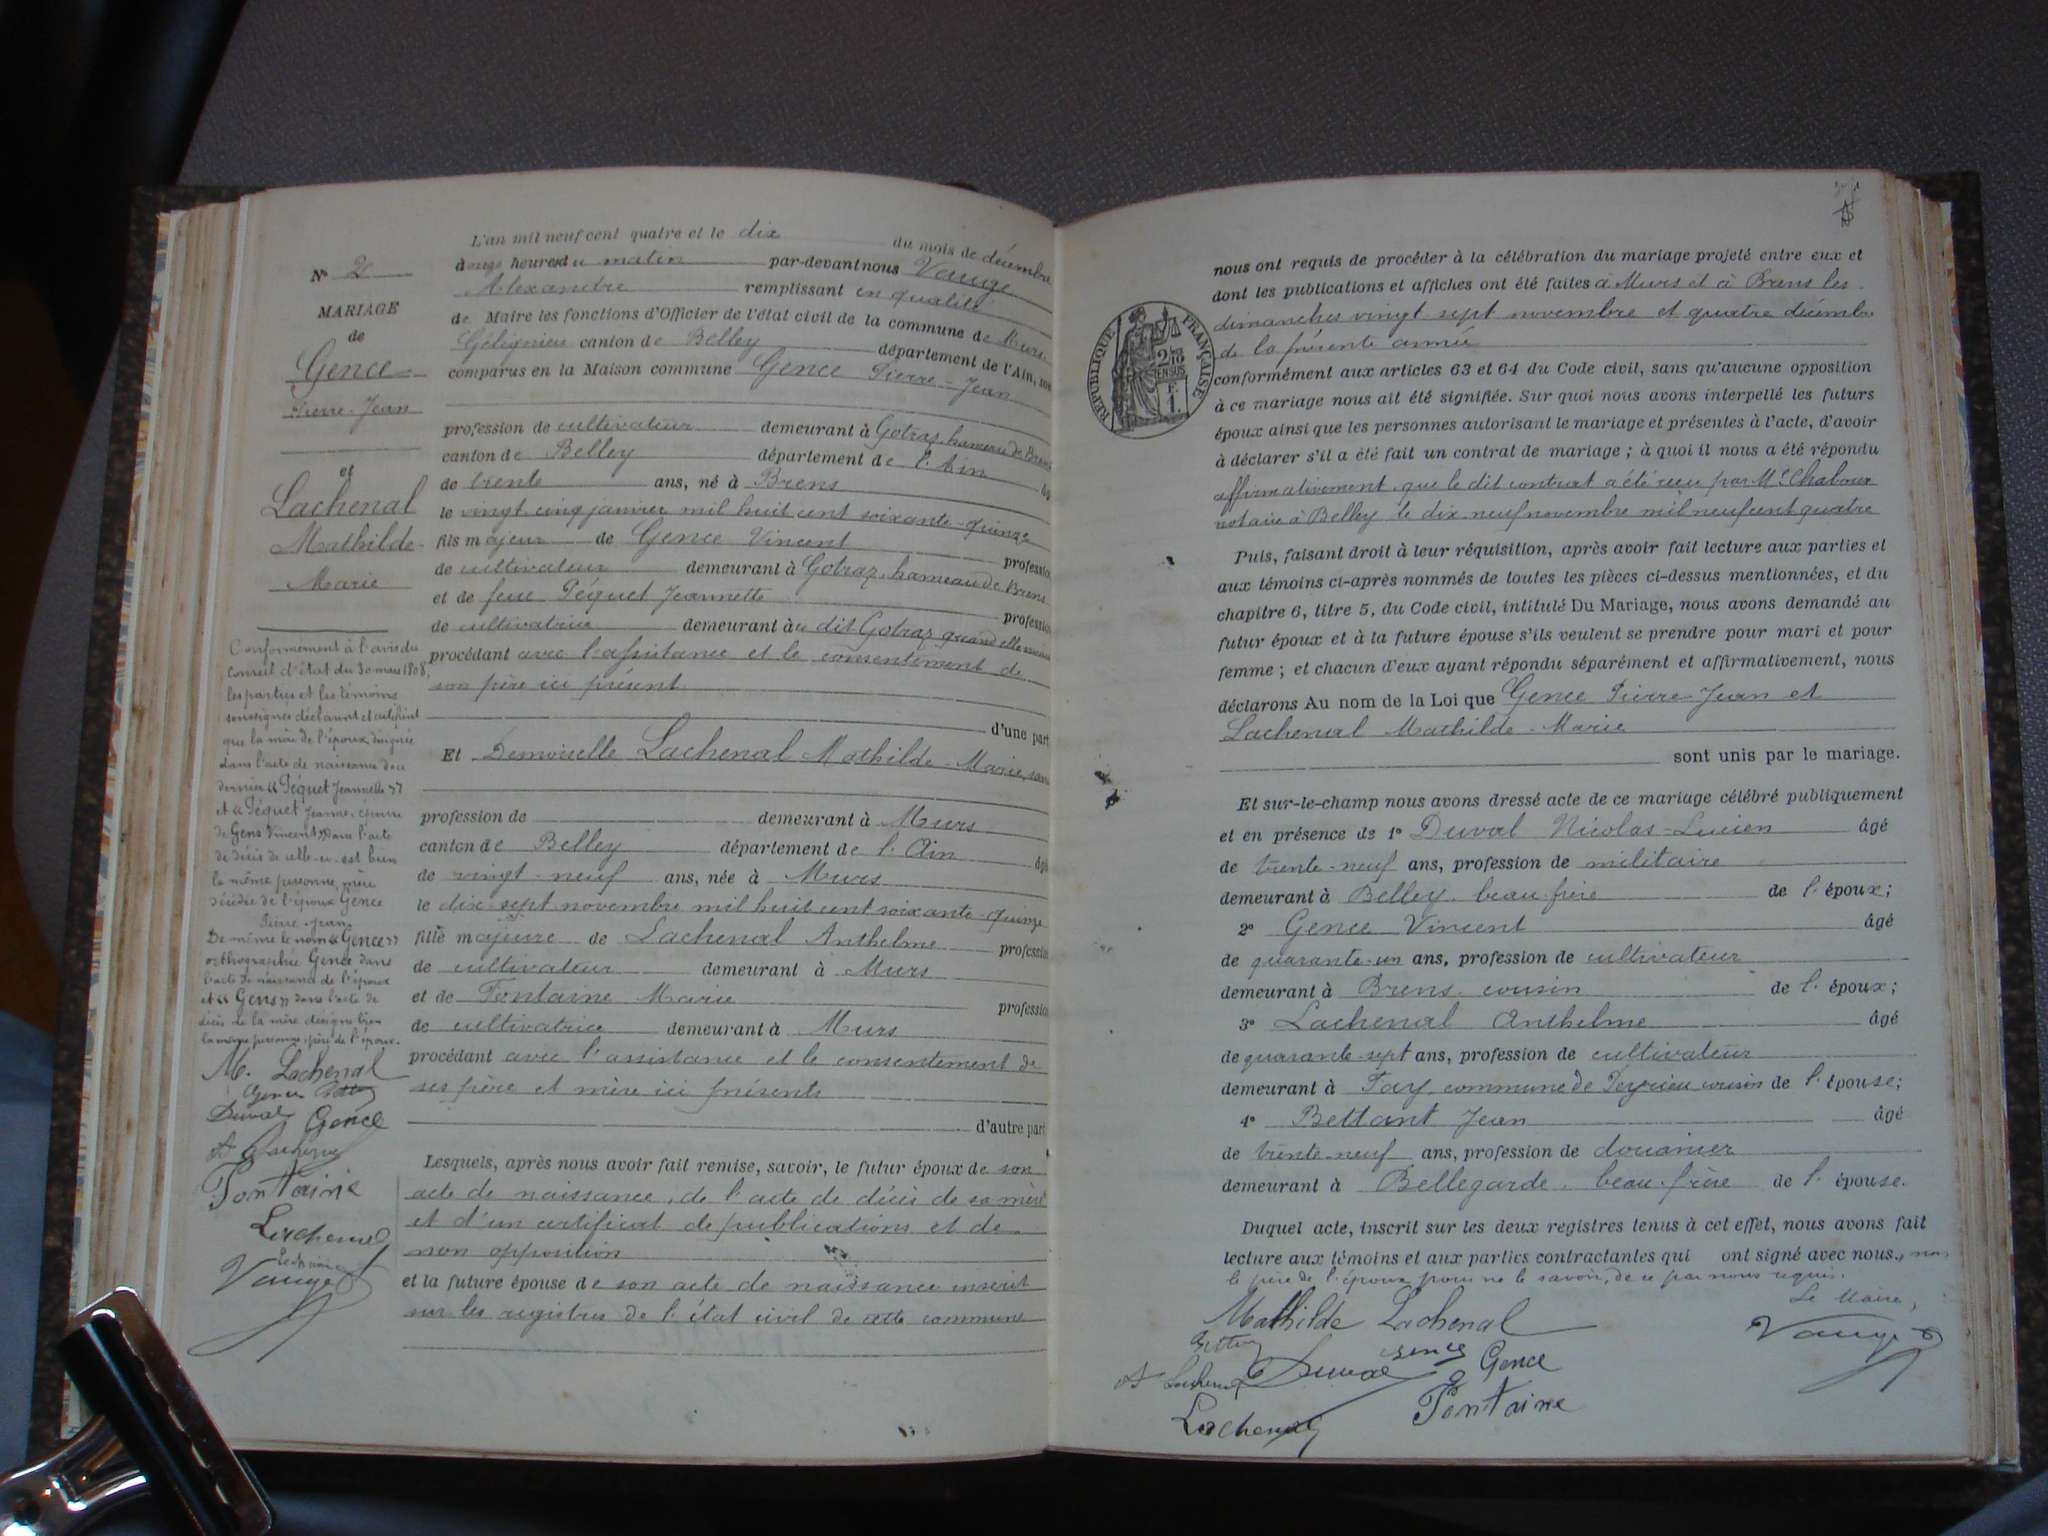 N° 2
MARIAGE
de
Gence
Pierre-Jean
et
Lachenal
Mathilde-
Marie
Conformément à l'avis du
Conseil d'état du 30 mars 1808,
les parties et les témoins
soussignés déclarent et certifient
que la mère de l'époux désignée
dans l'acte de naissance de ce
dernier « Péquet Jeannette »
et « Péquet Jeanne, épouse
de Gens Vincent » dans l'acte
de décès de celle-ci est bien
la même personne, mère
décédée de l'époux Gence
Pierre-Jean
De même le nom « Gence »
orthographié Gence dans
l'acte de naissance de l'époux
et « Gens » dans l'acte de
décès de la mère désigne bien
la même personne, père de l'époux.
M. Lachenal
Duval Gence
Fontaine
Lachenal
Vauge
L'an mil neuf cent quatre et le dix du mois de décembre
à onze heures du matin par-devant nous Vauge
Alexandre remplissant en qualité
de Maire les fonctions d'Officier de l'état civil de la commune de Murs
Gélignieu canton de Belley département de l'Ain, sont
comparus en la Maison commune Gence Pierre-Jean
profession de cultivateur demeurant à Gotraz, hameau de Brens
canton de Belley département de l'Ain
de trente ans, né à Brens
le vingt cinq janvier mil huit cent soixante-quinze
fils majeur de Gence Vincent profession
de cultivateur demeurant à Gotraz, hameau de Brens
et de feue Péquet Jeannette profession
de cultivatrice demeurant au dit Gotraz quand elle
procédant avec l'assistance et le consentement de
son père ici présent
d'une part
Et Demoiselle Lachenal Mathilde-Marie, sans
profession de demeurant à Murs
canton de Belley département de l'Ain
de vingt-neuf ans, née à Murs
le dix-sept novembre mil huit cent soixante-quinze
fille majeure de Lachenal Anthelme profession
de cultivateur demeurant à Murs
et de Fontaine Marie profession
de cultivatrice demeurant à Murs
procédant avec l'assistance et le consentement de
ses père et mère ici présents
d'autre part
Lesquels, après nous avoir fait remise, savoir, le futur époux de son
acte de naissance, de l'acte de décès de sa mère
et d'un certificat de publications et de
non opposition
et la future épouse de son acte de naissance inscrit
sur les registres de l'état civil de cette commune
RÉPUBLIQUE FRANÇAISE
nous ont requis de procéder à la célébration du mariage projeté entre eux et
dont les publications et affiches ont été faites à Murs et à Brens les
dimanches vingt sept novembre et quatre décembre
de la présente année
conformément aux articles 63 et 64 du Code civil, sans qu'aucune opposition
à ce mariage nous ait été signifiée. Sur quoi nous avons interpellé les futurs
époux ainsi que les personnes autorisant le mariage et présentes à l'acte, d'avoir
à déclarer s'il a été fait un contrat de mariage ; à quoi il nous a été répondu
affirmativement que le dit contrat a été reçu par Me Chaboux
notaire à Belley le dix neuf novembre mil neuf cent quatre
Puis, faisant droit à leur réquisition, après avoir fait lecture aux parties et
aux témoins ci-après nommés de toutes les pièces ci-dessus mentionnées, et du
chapitre 6, titre 5, du Code civil, intitulé Du Mariage, nous avons demandé au
futur époux et à la future épouse s'ils veulent se prendre pour mari et pour
femme ; et chacun d'eux ayant répondu séparément et affirmativement, nous
déclarons Au nom de la Loi que Gence Pierre-Jean et
Lachenal Mathilde-Marie
sont unis par le mariage.
Et sur-le-champ nous avons dressé acte de ce mariage célébré publiquement
et en présence de 1° Duval Nicolas-Lucien âgé
de trente-neuf ans, profession de militaire
demeurant à Belley, beau-frère de l'époux;
2° Gence Vincent âgé
de quarante-un ans, profession de cultivateur
demeurant à Brens, cousin de l'époux;
3° Lachenal Anthelme âgé
de quarante-sept ans, profession de cultivateur
demeurant à Fay, commune de Peyrieu cousin de l'épouse;
4° Bettant Jean âgé
de trente-neuf ans, profession de douanier
demeurant à Bellegarde, beau-frère de l'épouse.
Duquel acte, inscrit sur les deux registres tenus à cet effet, nous avons fait
lecture aux témoins et aux parties contractantes qui ont signé avec nous, non
le père de l'époux pour ne le savoir, de ce par nous requis.
Le Maire,
Mathilde Lachenal
Vauge
Duval Gence Gence
A Lachenal
Fontaine
Lachenal